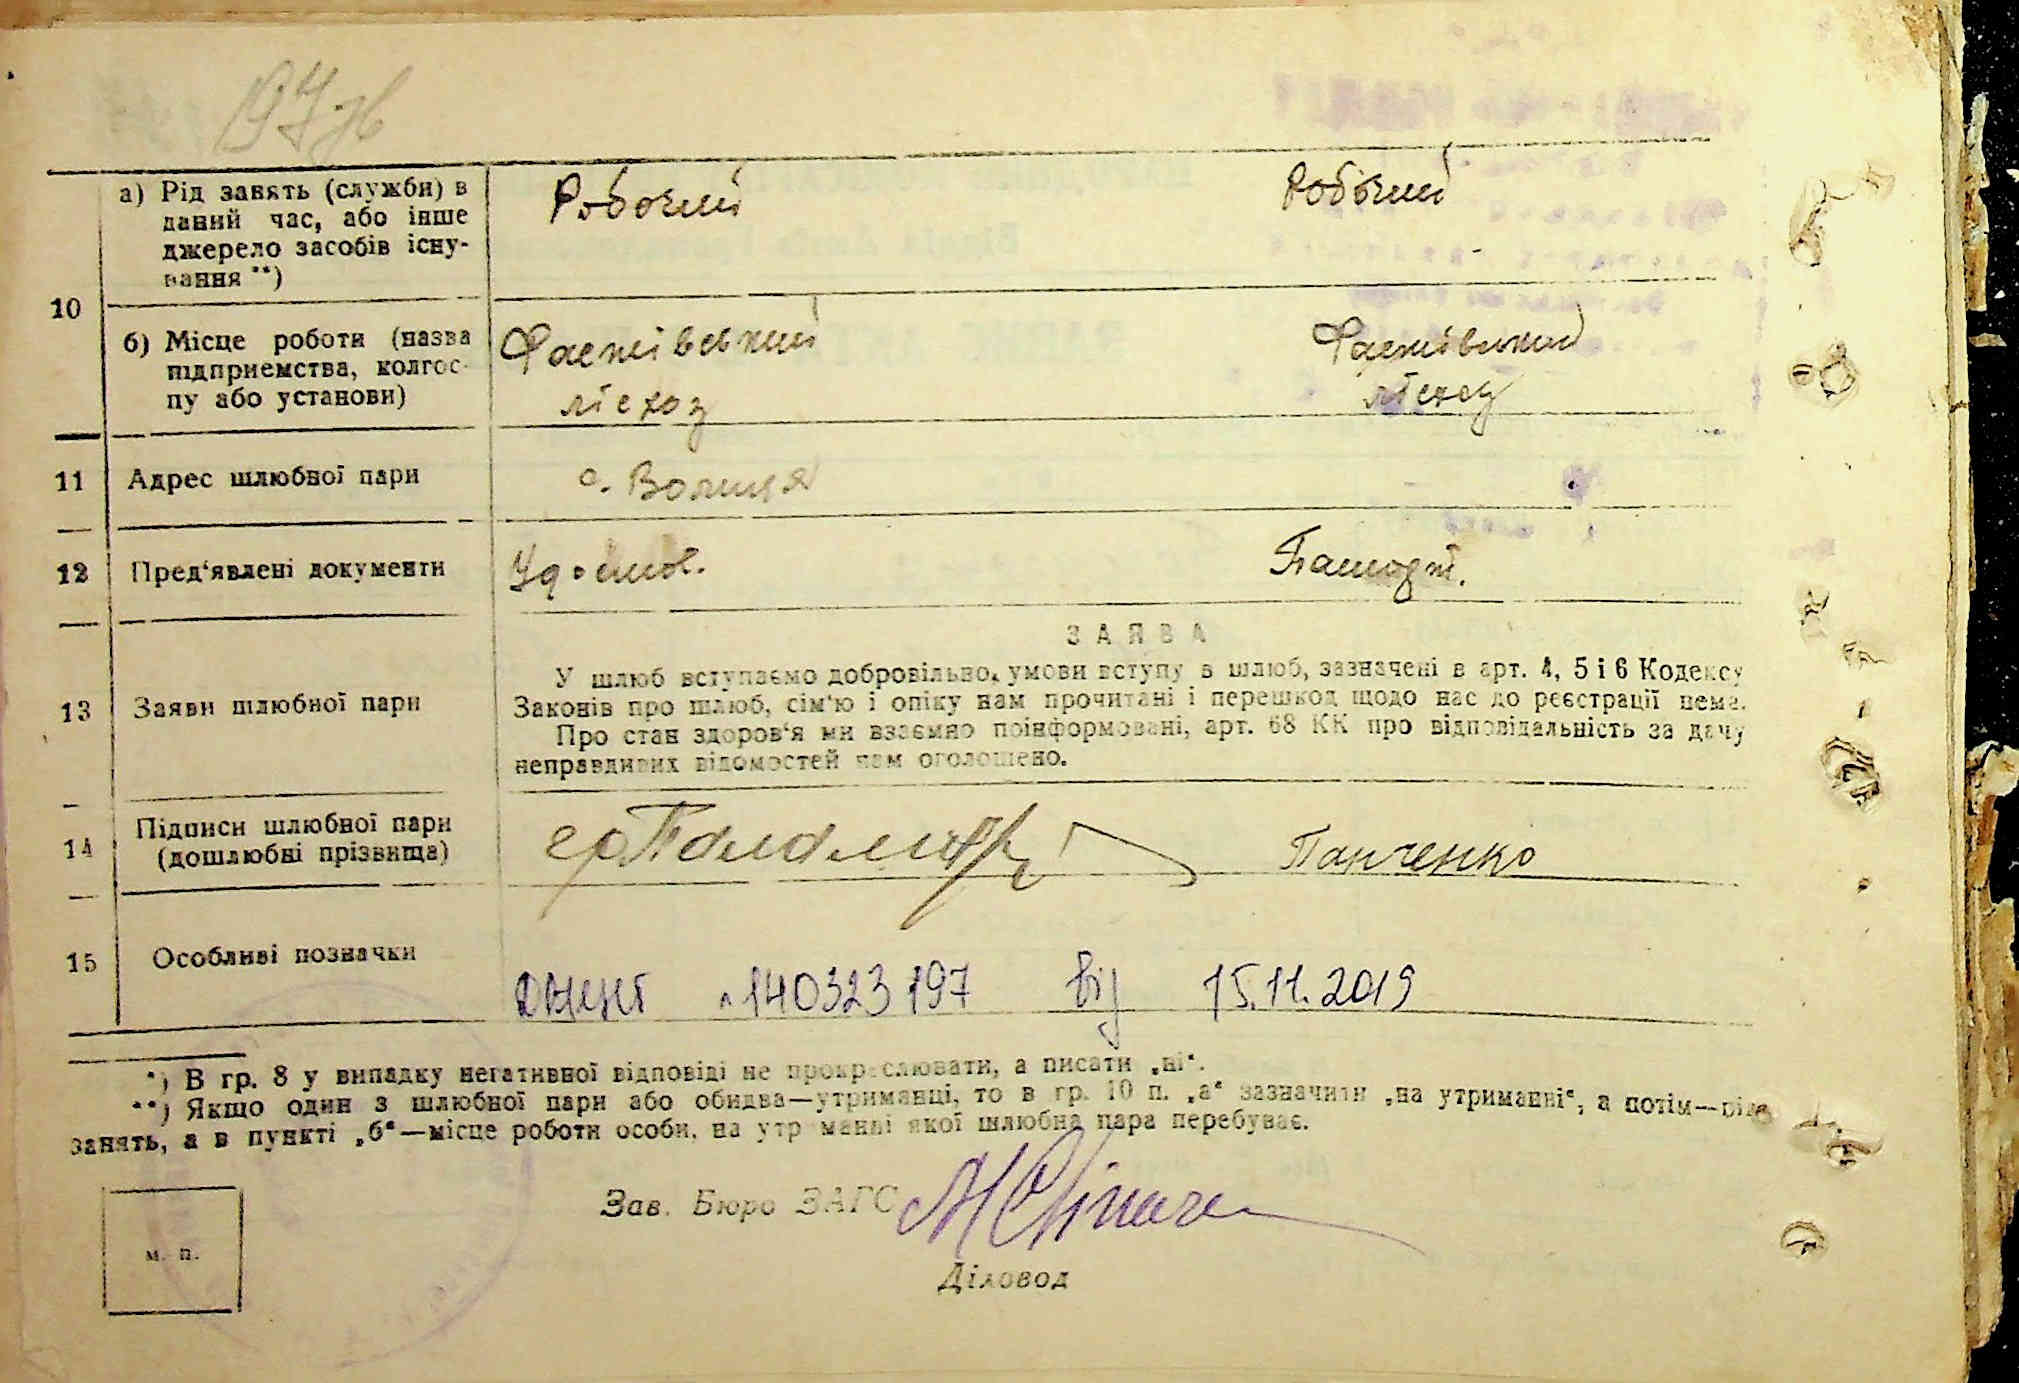 197 зв
10
а) Рід занять (служби) в
даний час, або інше
джерело засобів існу-
вання **)
Робочий
Робочий
б) Місце роботи (назва
підприємства, колгос-
пу або установи)
Фастівський
лісхоз
Фастівський
лісхоз
11
Адрес шлюбної пари
с. Волиця
12
Пред'явлені документи
Удостов.
Пашорт.
13
Заяви шлюбної пари
ЗАЯВА
У шлюб вступаємо добровільно, умови вступу в шлюб, зазначені в арт. 4, 5 і 6 Кодексу
Законів про шлюб, сім'ю і опіку нам прочитані і перешкод щодо нас до реєстрації нема.
Про стан здоров'я ми взаємно поінформовані, арт. 68 КК про відповідальність за дачу
неправдивих відомостей нам оголошено.
14
Підписи шлюбної пари
(дошлюбні прізвища)
Панченко
15
Особливі позначки
140323197 від 15.11.2019
*) В гр. 8 у випадку негативної відповіді не прокреслювати, а писати „ні“.
**) Якщо один з шлюбної пари або обидва—утриманці, то в гр. 10 п. „а“ зазначити „на утриманні“, а потім—рід
занять, а в пункті „б“—місце роботи особи, на утриманні якої шлюбна пара перебуває.
Зав. Бюро ЗАГС
м. п.
Діловод